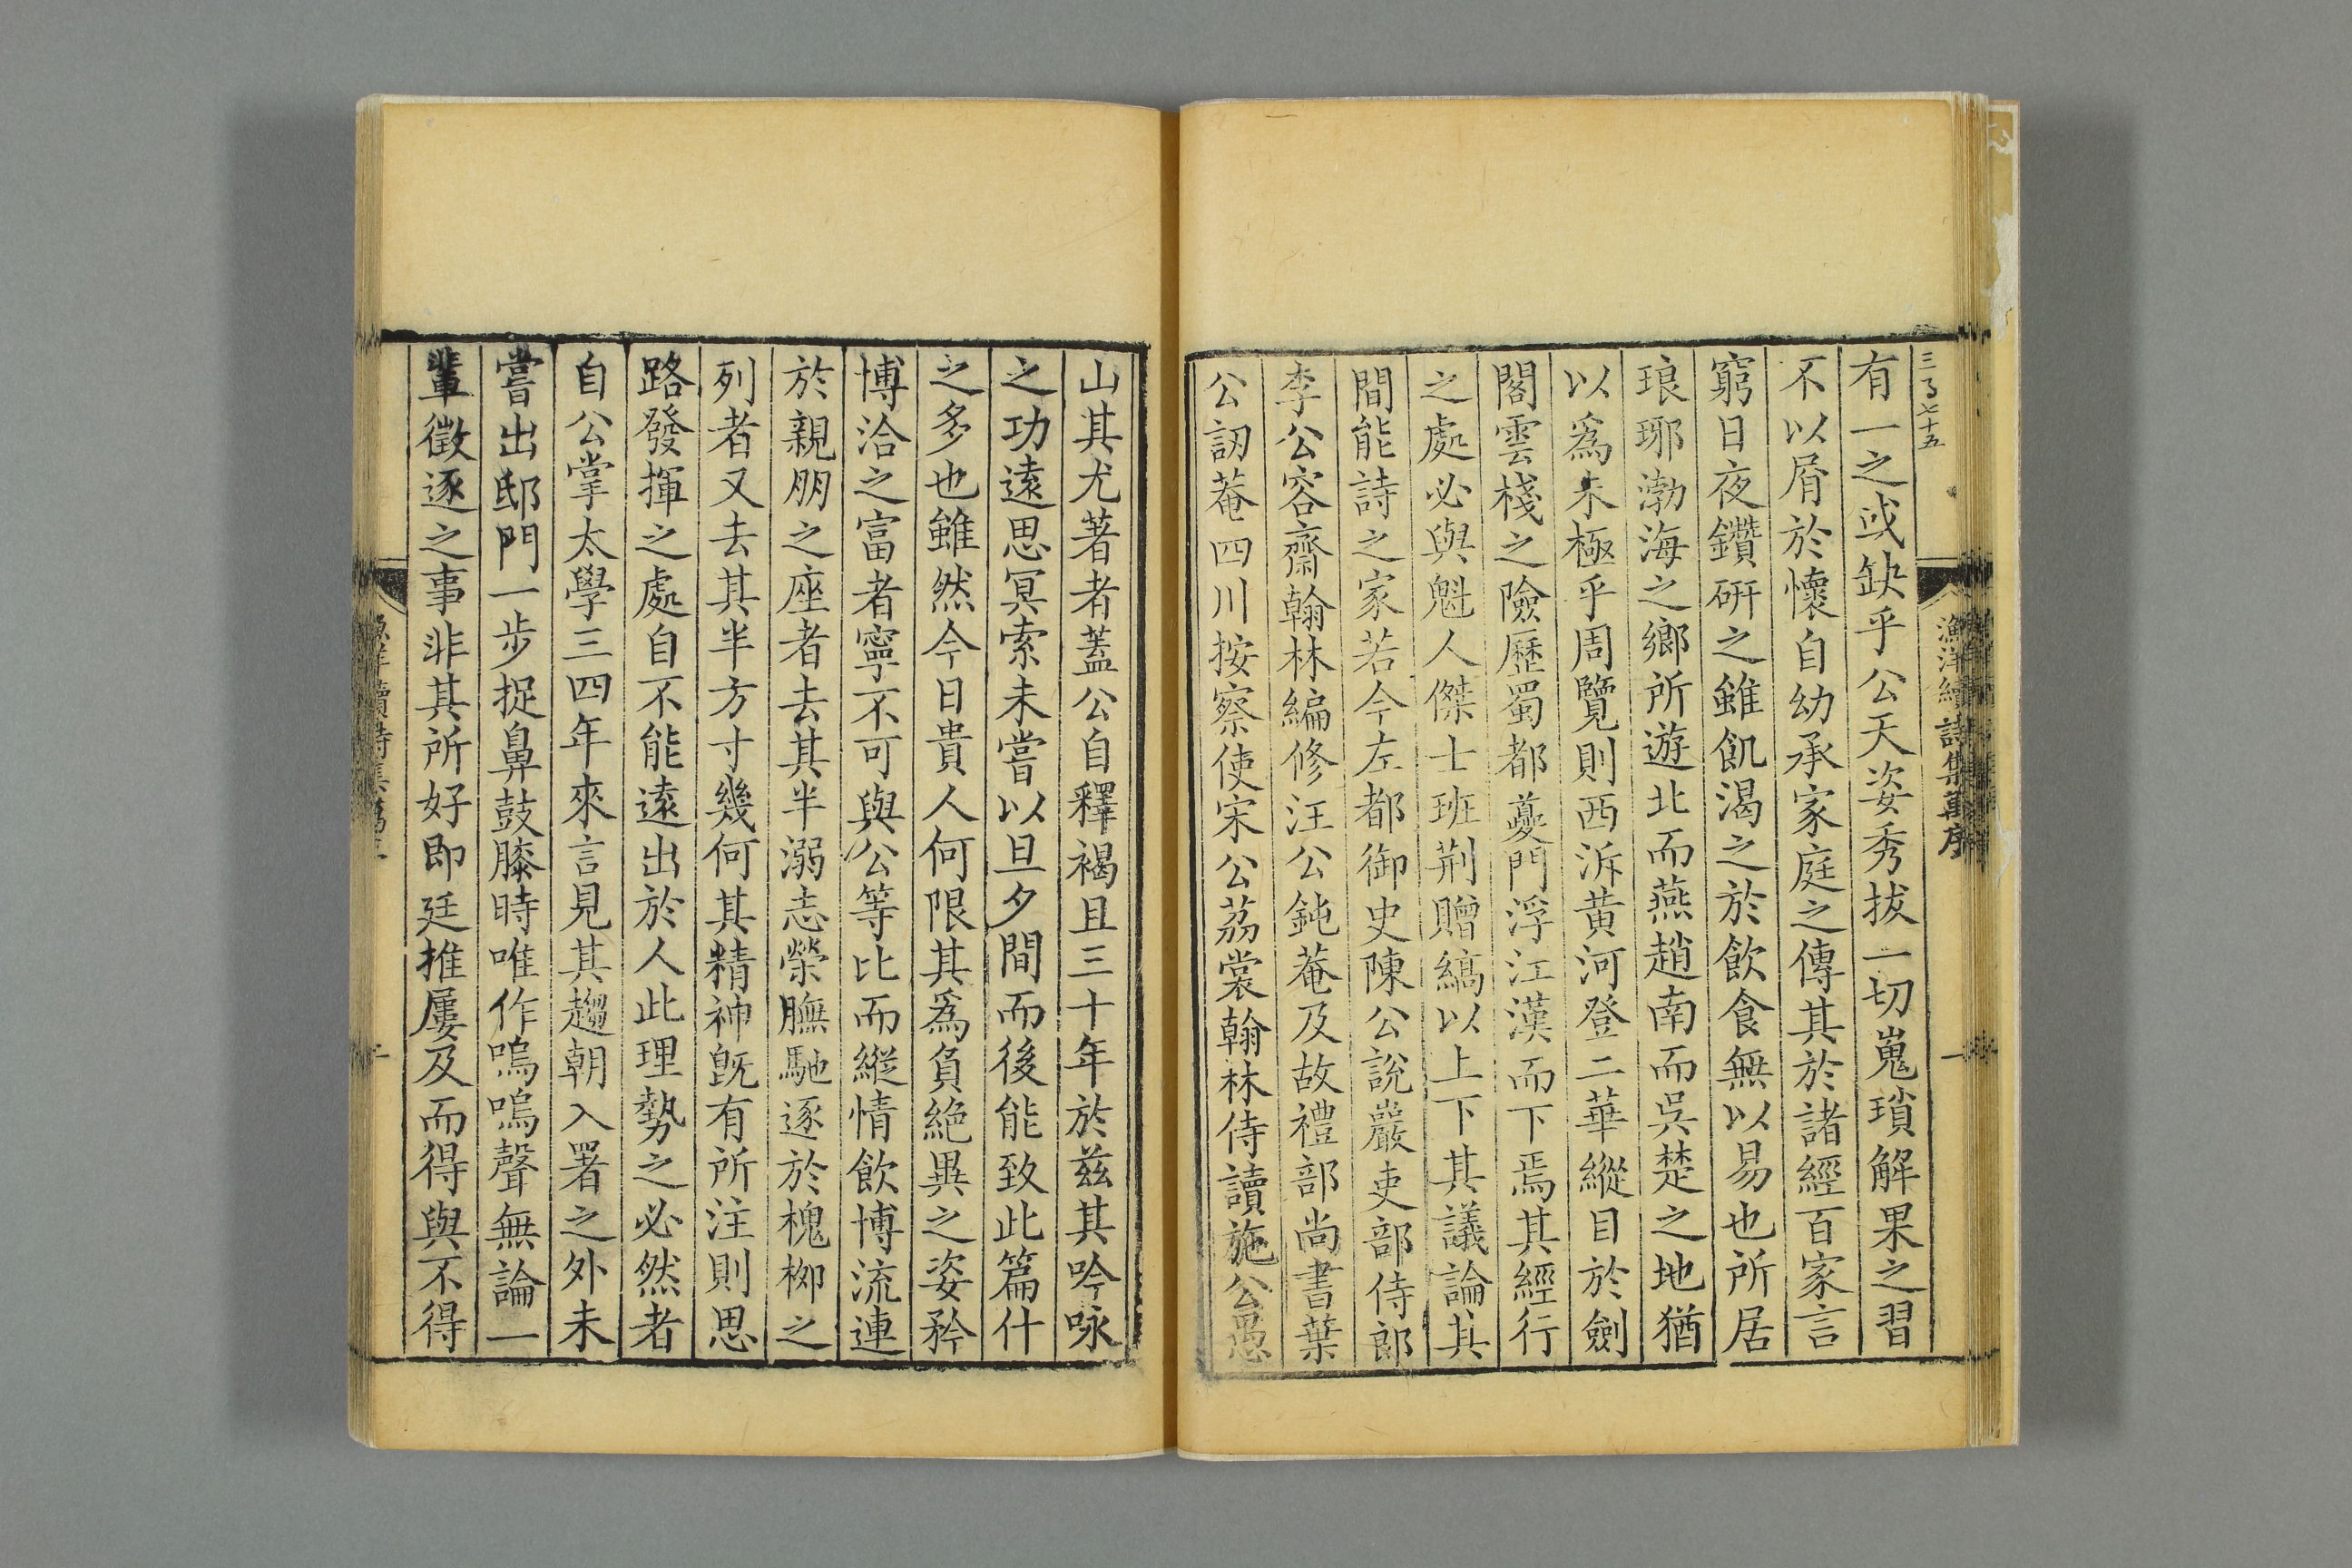 漁洋續詩集萬序
一
有一之或缺乎公天姿秀拔一切嵬瑣解果之習
不以屑於懷自幼承家庭之傳其於諸經百家言
窮日夜鑽研之雖飢渴之於飲食無以易也所居
琅琊渤海之鄉所遊北而燕趙南而吳楚之地猶
以爲未極乎周覽則西泝黄河登二華縱目於劍
閣雲棧之險歷蜀都夔門浮江漢而下焉其經行
之處必與魁人傑士班荆贈縞以上下其議論其
間能詩之家若今左都御史陳公說巖吏部侍郎
李公容齋翰林編修汪公鈍菴及故禮部尚書葉
公訒菴四川按察使宋公荔裳翰林侍讀施公愚
山其尤著者蓋公自釋褐且三十年於兹其吟咏
之功遠思冥索未嘗以旦夕間而後能致此篇什
之多也雖然今日貴人何限其爲負絶異之姿矜
博洽之富者寧不可與公等比而縱情飲博流連
於親朋之座者去其半溺志榮膴馳逐於槐栁之
列者又去其半方寸幾何其精神旣有所注則思
路發揮之處自不能遠出於人此理勢之必然者
自公掌太學三四年來言見其趨朝入署之外未
嘗出邸門一步捉鼻鼓膝時唯作嗚嗚聲無論一
輩徵逐之事非其所好即廷推屢及而得與不得